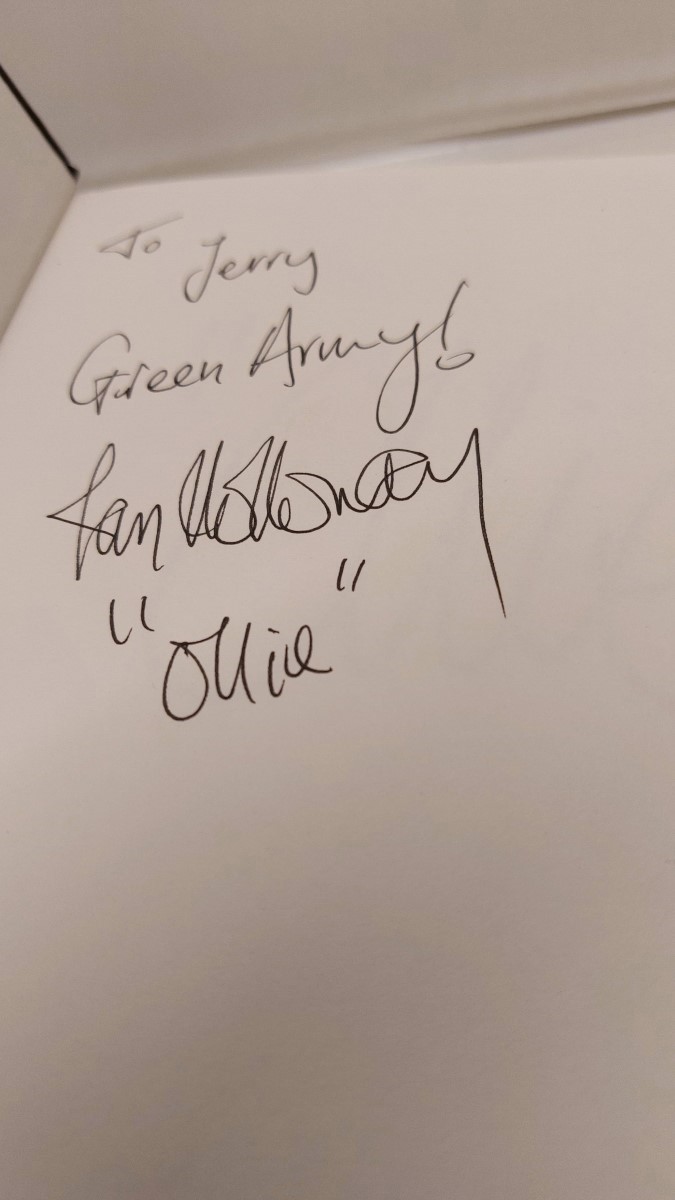 To Jerry
Green Army!
Ian Holloway
"Ollie"